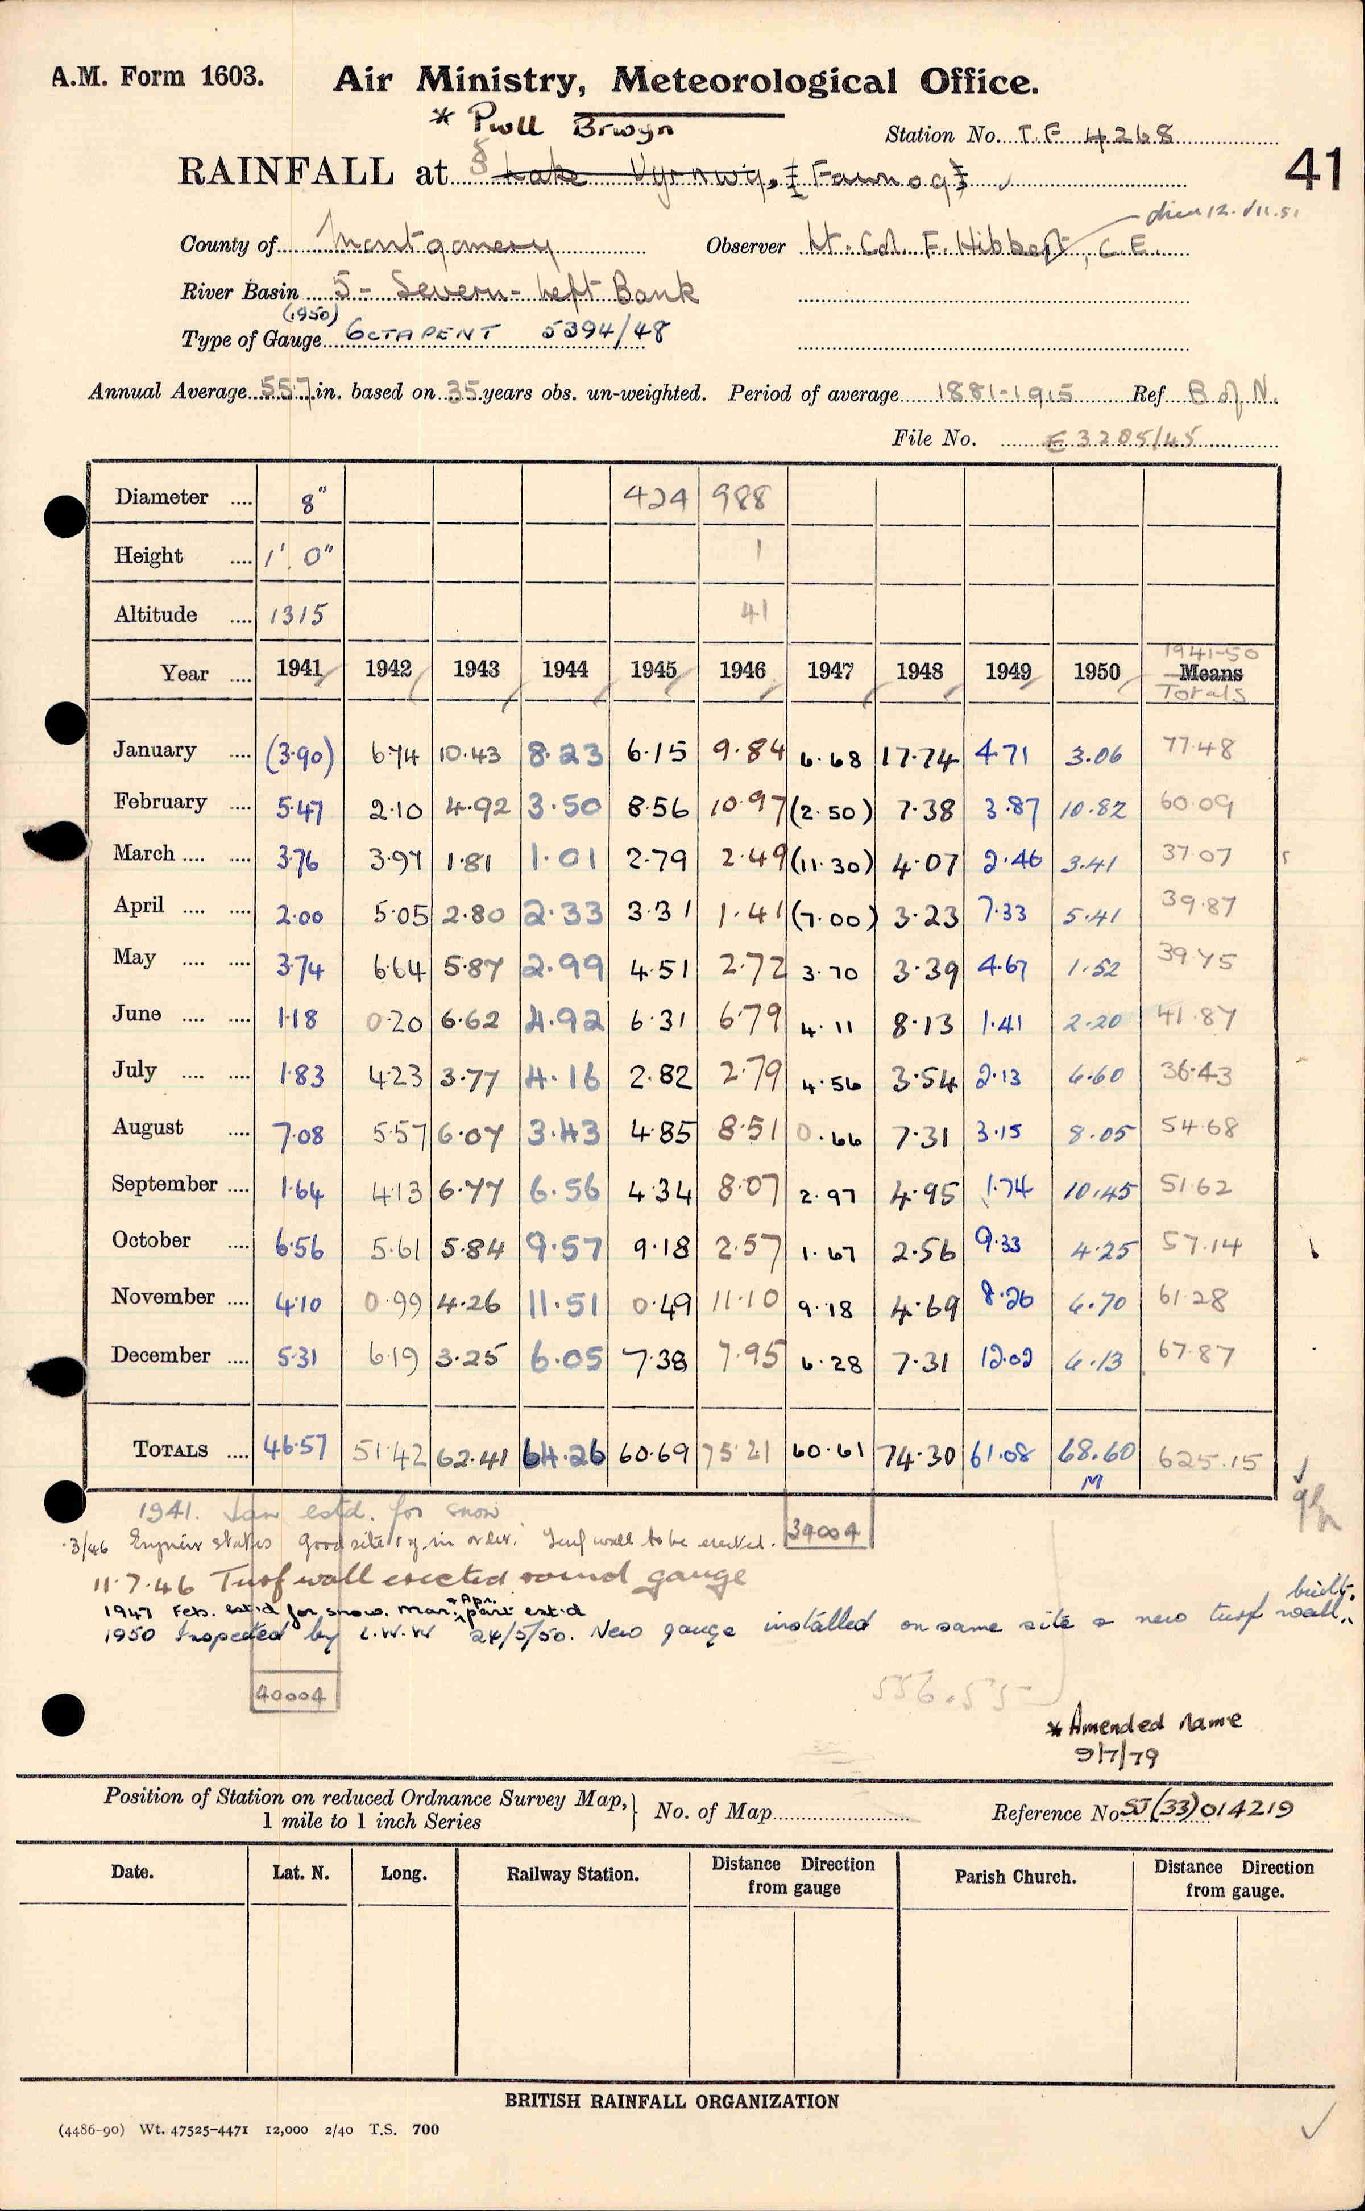 A.M. Form 1603.
Air Ministry, Meteorological Office.
* Pwll Brwyn
Station No. T.F 4268
41
RAINFALL at § Lake Vyrnwy, [Fawnog]
died 12. VII. 51
County of Montgomery Observer Lt. Col. F. Hibbert, C.E.
River Basin 5 - Severn - Left Bank
(1950)
Type of Gauge OCTAPENT 5394/48
Annual Average 55.7 in. based on 35 years obs. un-weighted. Period of average 1881-1915 Ref B of N.
File No. E 3285/45
Diameter .... 8" 424 988
Height .... 1' 0" 1
Altitude .... 1315 41
1941-50
Year .... 1941 1942 1943 1944 1945 1946 1947 1948 1949 1950 Means
Totals
January .... (3.90) 6.74 10.43 8.23 6.15 9.84 6.68 17.74 4.71 3.06 77.48
February .... 5.47 2.10 4.92 3.50 8.56 10.97 (2.50) 7.38 3.87 10.82 60.09
March .... .... 3.76 3.97 1.81 1.01 2.79 2.49 (11.30) 4.07 2.46 3.41 37.07
April .... .... 2.00 5.05 2.80 2.33 3.31 1.41 (7.00) 3.23 7.33 5.41 39.87
May .... .... 3.74 6.64 5.87 2.99 4.51 2.72 3.70 3.39 4.67 1.52 39.75
June .... .... 1.18 0.20 6.62 4.92 6.31 6.79 4.11 8.13 1.41 2.20 41.87
July .... .... 1.83 4.23 3.77 4.16 2.82 2.79 4.56 3.54 2.13 6.60 36.43
August .... 7.08 5.57 6.07 3.43 4.85 8.51 0.66 7.31 3.15 8.05 54.68
September .... 1.64 4.13 6.77 6.56 4.34 8.07 2.97 4.95 1.74 10.45 51.62
October .... 6.56 5.61 5.84 9.57 9.18 2.57 1.67 2.56 9.33 4.25 57.14
November .... 4.10 0.99 4.26 11.51 0.49 11.10 9.18 4.69 8.26 6.70 61.28
December .... 5.31 6.19 3.25 6.05 7.38 7.95 6.28 7.31 12.02 6.13 67.87
TOTALS .... 46.57 51.42 62.41 64.26 60.69 75.21 60.61 74.30 61.08 68.60 625.15
M
1941. Jan estd. for snow
.3/46 Engineer states good site, g. in order. Turf wall to be erected. 34004
11.7.46 Turf wall erected round gauge
1947 Feb. est'd for snow. Mar. & Apr. part est'd
1950 Inspected by L.W.W 24/5/50. New gauge installed on same site & new turf wall built.
40004
556.55
* Amended name
9/7/79
Position of Station on reduced Ordnance Survey Map, 1 mile to 1 inch Series } No. of Map Reference No SJ (33) 014219
Date. Lat. N. Long. Railway Station. Distance Direction from gauge Parish Church. Distance Direction from gauge.
BRITISH RAINFALL ORGANIZATION
(4486-90) Wt. 47525-4471 12,000 2/40 T.S. 700